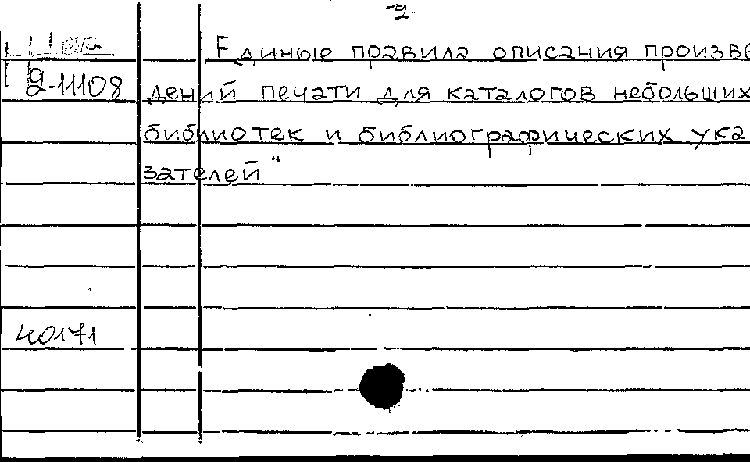 -2-
Единые правила описания произве
g-11108
дений печати для каталогов небольших
библиотек и библиографических ука
зателей"
40171